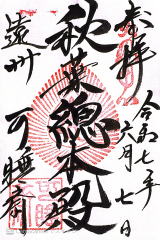 奉拝
令和七年
六月七日
秋葉總本殿
遠州
可睡齋